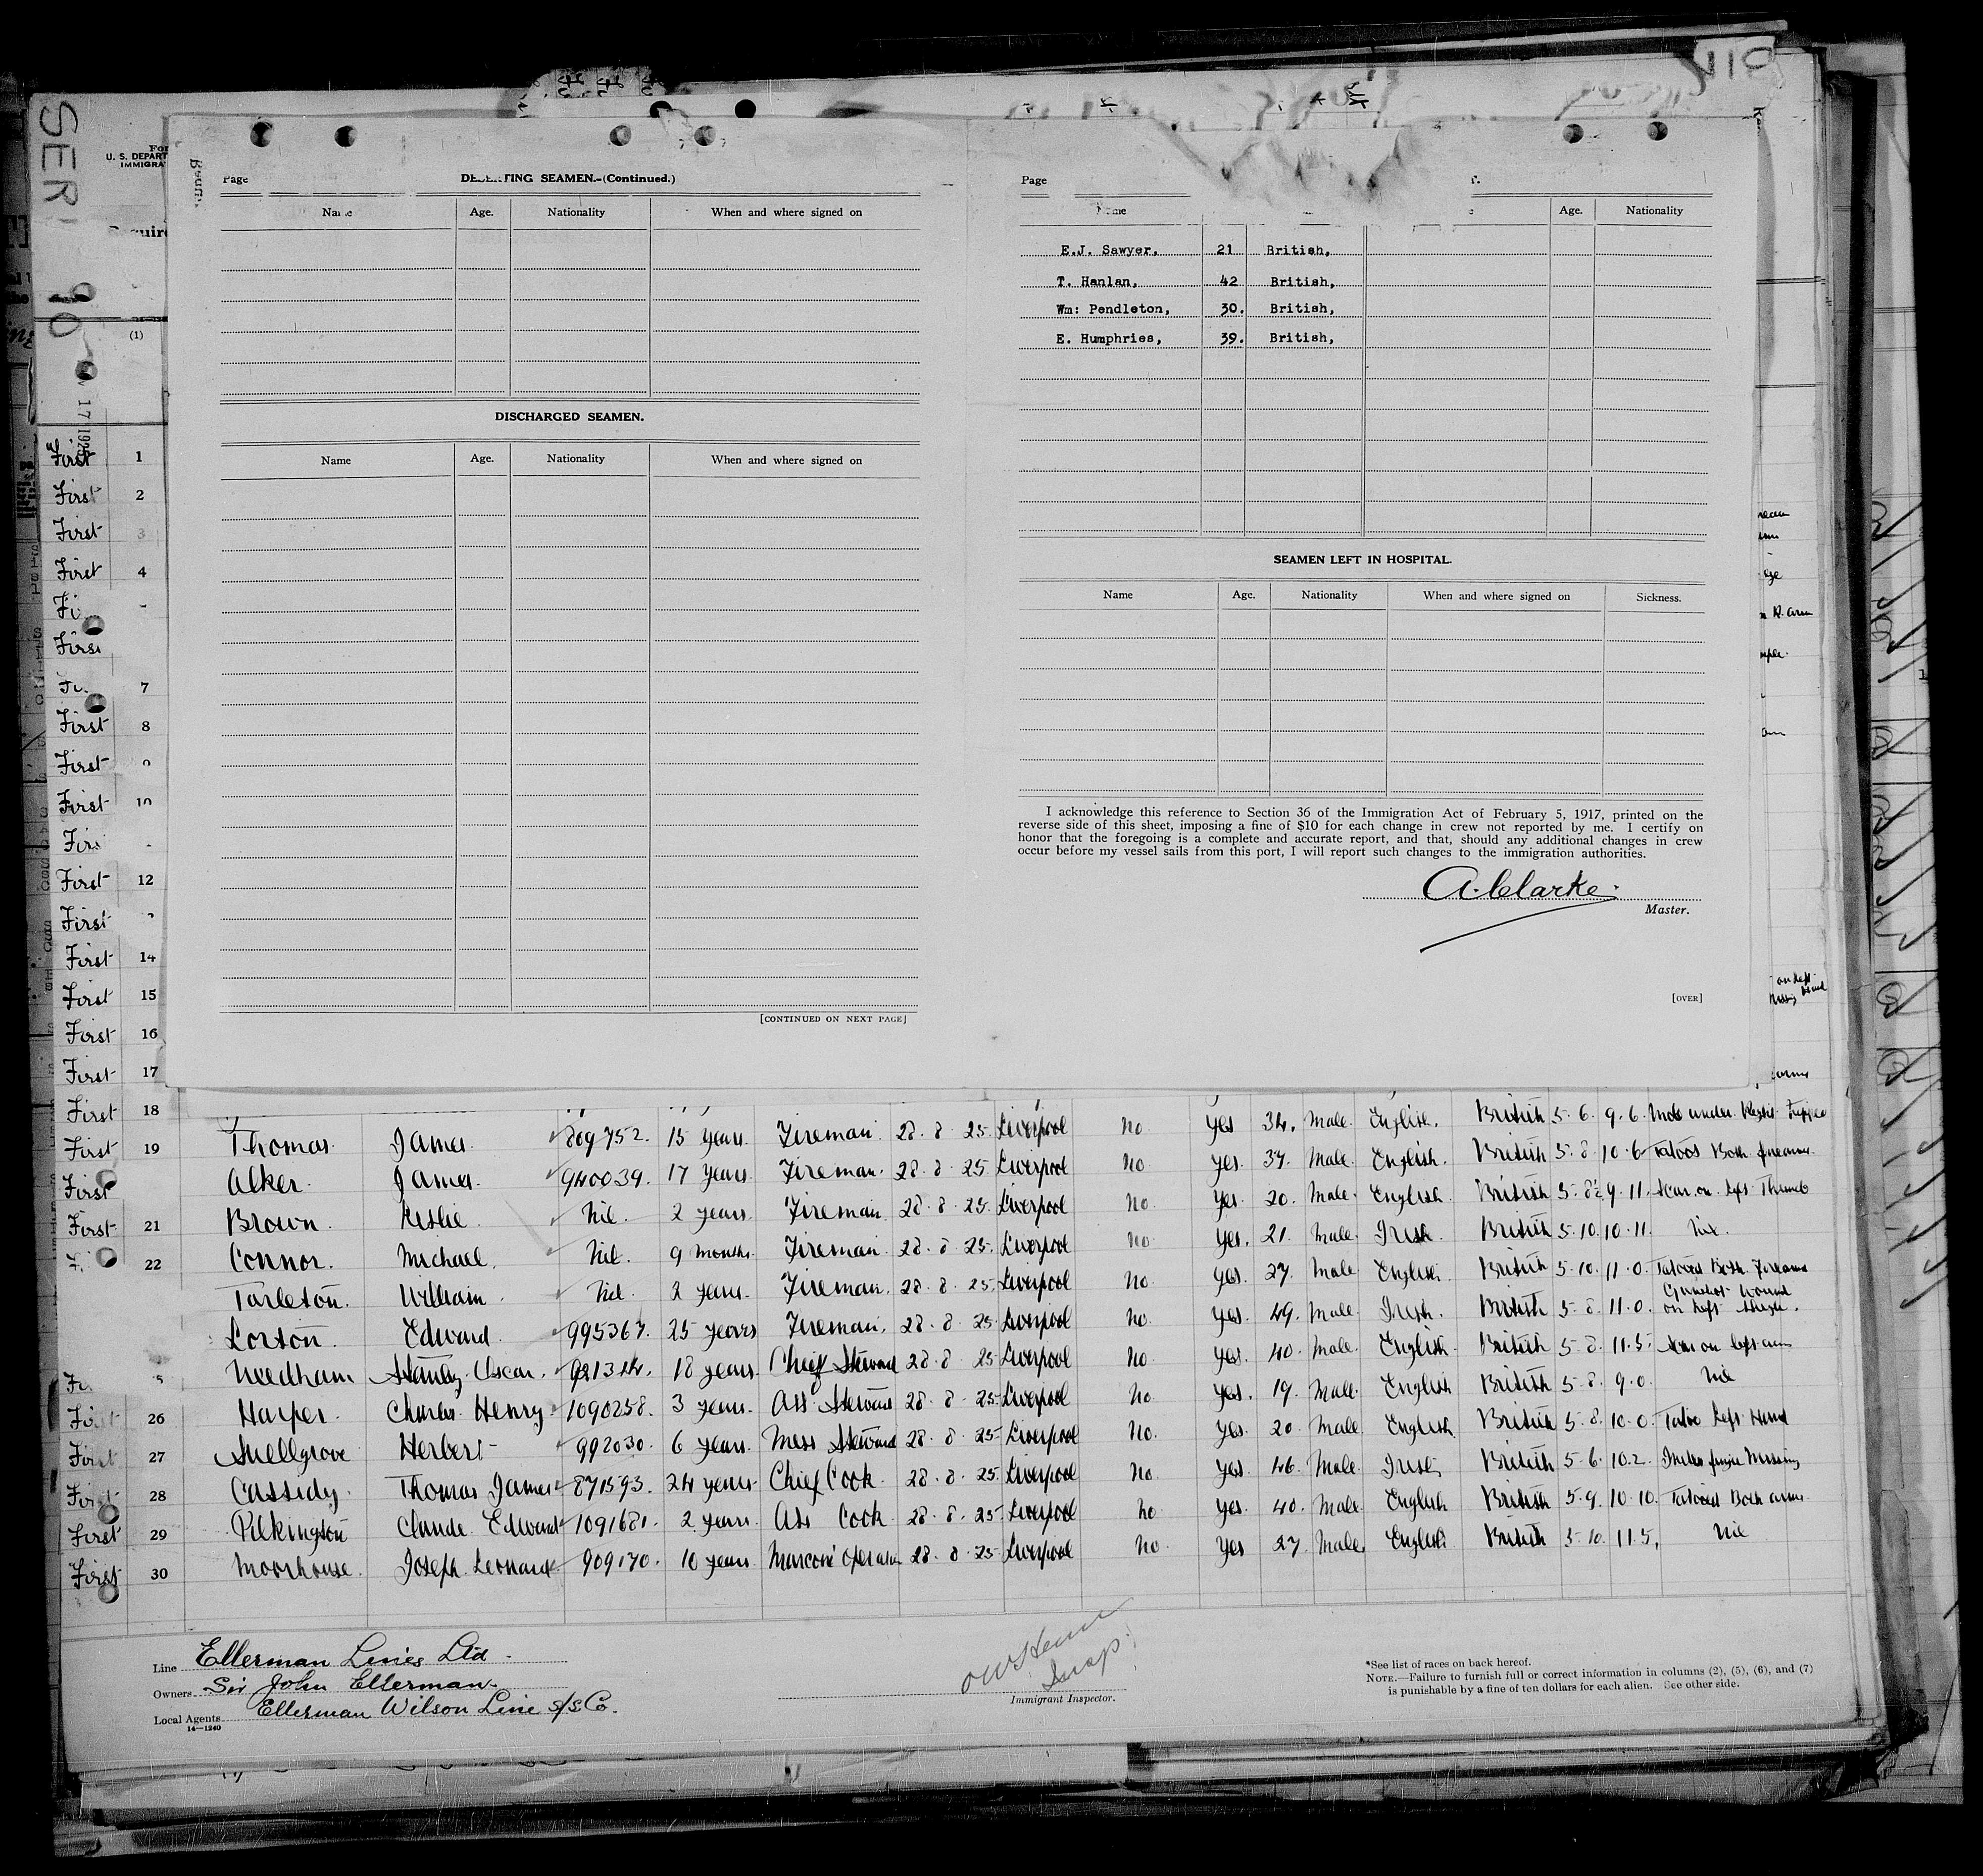 SER
910
110
U. S. DEPART
IMMIGRA
(1)
Page
DESERTING SEAMEN.—(Continued.)
Name Age. Nationality When and where signed on
DISCHARGED SEAMEN.
Name Age. Nationality When and where signed on
[CONTINUED ON NEXT PAGE]
Page
Name Age. Nationality
E.J. Sawyer, 21 British,
T. Hanlan, 42 British,
Wm: Pendleton, 30. British,
E. Humphries, 39. British,
SEAMEN LEFT IN HOSPITAL.
Name Age. Nationality When and where signed on Sickness.
I acknowledge this reference to Section 36 of the Immigration Act of February 5, 1917, printed on the
reverse side of this sheet, imposing a fine of $10 for each change in crew not reported by me. I certify on
honor that the foregoing is a complete and accurate report, and that, should any additional changes in crew
occur before my vessel sails from this port, I will report such changes to the immigration authorities.
A. Clarke.
Master.
[OVER]
First 1
First 2
First 3
First 4
First
First 7
First 8
First 9
First 10
First 12
First
First 14
First 15
First 16
First 17
First 18
First 19 Thomas James 809752. 15 years Fireman 28.8.25. Liverpool No yes 34. Male English. British 5.6. 9.6. Mole under Right
First Alker. James. 940039. 17 years Fireman. 28.8.25 Liverpool No. yes. 37. Male. English. British 5.8. 10.6 Tatoos Both forearms.
First 21 Brown. Leslie. Nil. 2 years. Fireman 28.8.25. Liverpool No. yes. 20. Male. English. British 5.8½ 9.11. Scar on left Thumb
22 Connor. Michael. Nil. 9 months. Fireman. 28.8.25. Liverpool No yes. 21. Male. Irish. British 5.10. 10.11. Nil.
Tarleton. William. Nil. 2 years. Fireman. 28.8.25. Liverpool No. yes. 27. Male English. British 5.10. 11.0. Tatooed Both Forearms
Lorton Edward. 995367. 25 years Fireman. 28.8.25 Liverpool No. yes. 49. Male. Irish. British 5.8. 11.0. Gunshot wound on left thigh.
Needham Stanley Oscar. 921344. 18 years. Chief Steward 28.8.25 Liverpool No yes. 40. Male. English. British 5.8. 11.5. Scar on left arm
First 26 Harper. Charles Henry. 1090258. 3 years. Ass Steward 28.8.25 Liverpool No. yes. 19. Male. English British 5.8. 9.0. Nil
First 27 Snellgrove Herbert 992030. 6 years. Mess Steward 28.8.25 Liverpool No. yes. 20. Male English British 5.8. 10.0. Tatoo Left Hand
First 28 Cassidy Thomas James 871593. 24 years Chief Cook 28.8.25. Liverpool No. yes. 46. Male. Irish British 5.6. 10.2. Index finger Missing
First 29 Pilkington Claude Edward 1091681. 2 years. Ass Cook. 28.8.25 Liverpool No yes. 40. Male. English British 5.9. 10.10. Tatooed Both arms.
First 30 Moorhouse. Joseph Leonard 909170. 10 years. Marconi Operator 28.8.25 Liverpool No. yes 27. Male. English British 5.10. 11.5. Nil
Line Ellerman Lines Ltd.
Owners Sir John Ellerman.
Local Agents Ellerman Wilson Line S/S Co.
14—1240
Insp.
Immigrant Inspector.
*See list of races on back hereof.
NOTE.—Failure to furnish full or correct information in columns (2), (5), (6), and (7)
is punishable by a fine of ten dollars for each alien. See other side.